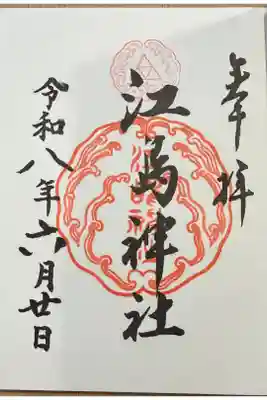 奉拝
江島神社
令和八年六月廿日